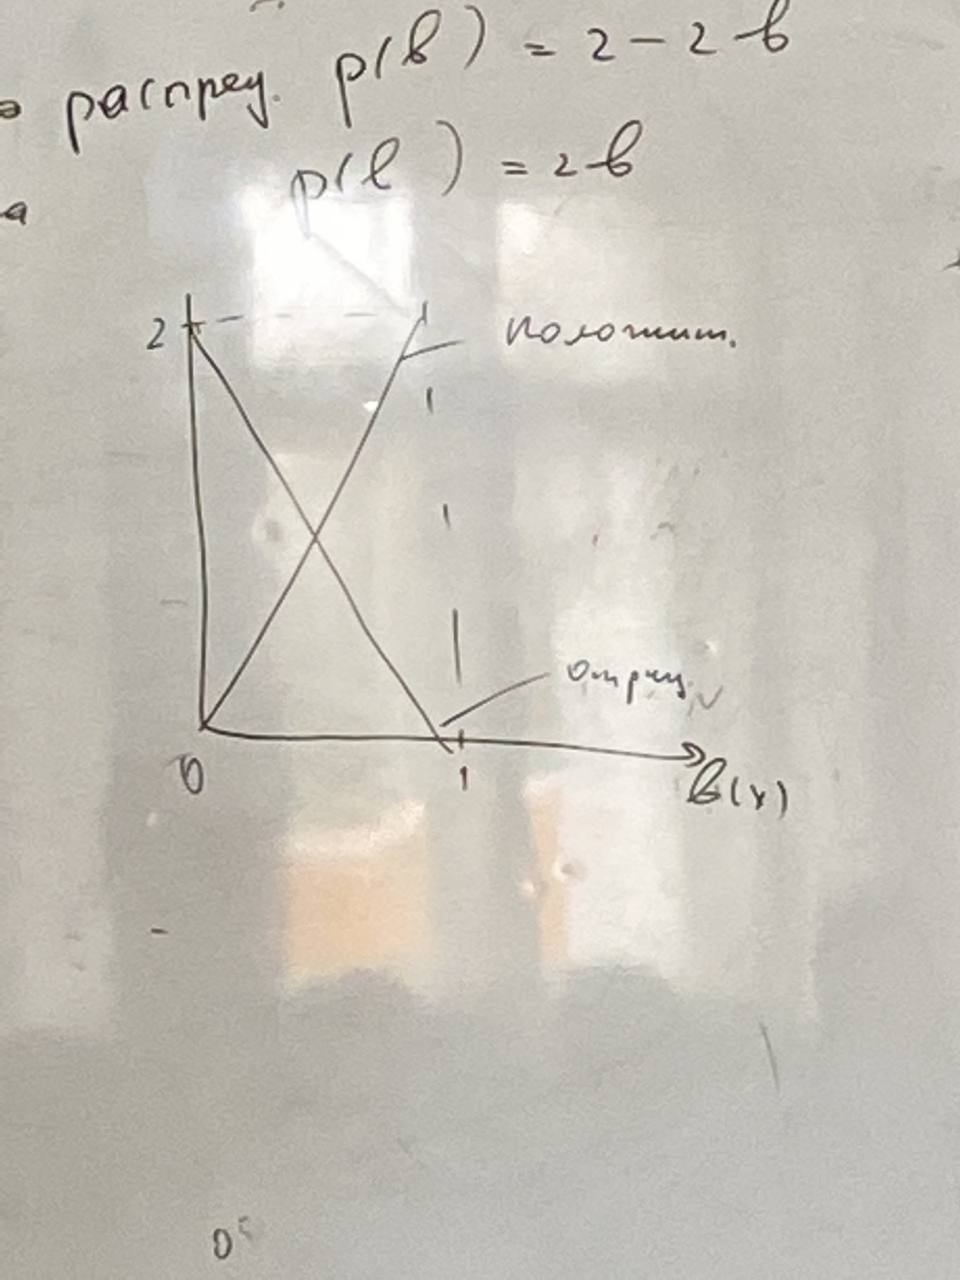 распред. p(b) = 2 - 2b
p(b) = 2b
2
положит.
отриц.
0
1
b(x)
0